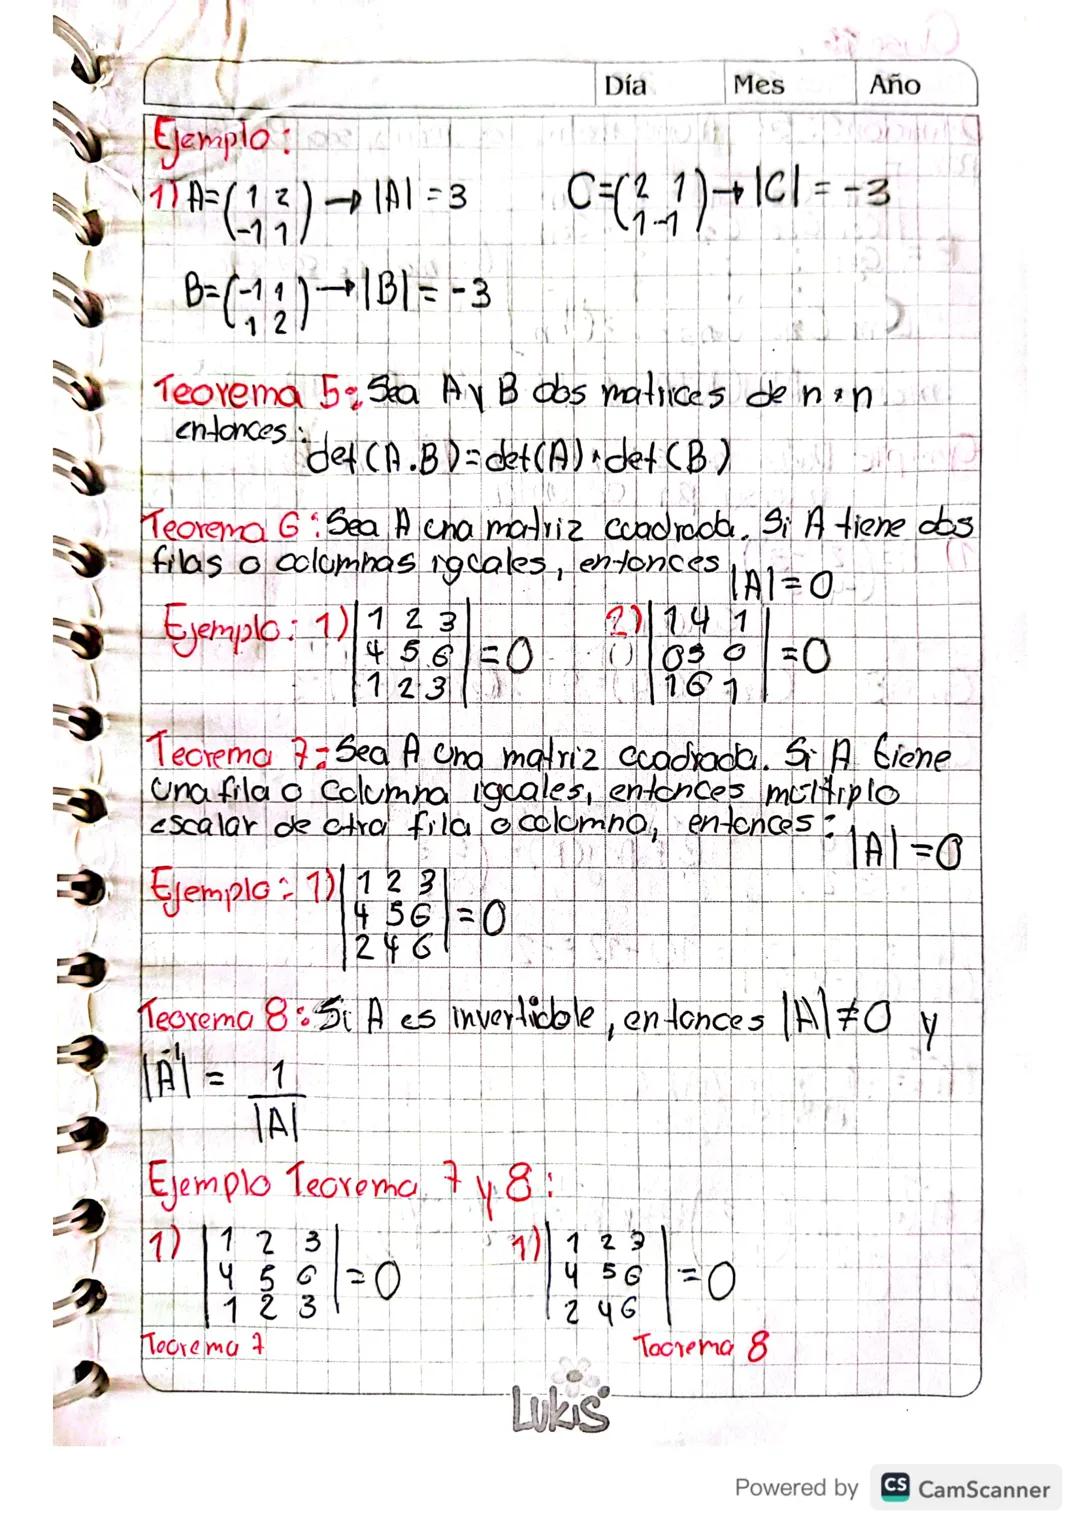 Día Mes Año
Ejemplo:
1) A=(1 2 / -1 1) → |A| = 3 C=(2 1 / 1 -1) → |C| = -3
B=(-1 1 / 1 2) → |B| = -3
Teorema 5: Sea A y B dos matrices de n×n
entonces:
det(A.B)=det(A).det(B)
Teorema 6: Sea A una matriz cuadrada. Si A tiene dos
filas o columnas iguales, entonces |A|=0
Ejemplo: 1) |1 2 3 / 4 5 6 / 1 2 3| = 0 2) |1 4 1 / 0 5 0 / 1 6 1| = 0
Teorema 7: Sea A una matriz cuadrada. Si A tiene
una fila o columna iguales, entonces múltiplo
escalar de otra fila o columna, entonces: |A|=0
Ejemplo: 1) |1 2 3 / 4 5 6 / 2 4 6| = 0
Teorema 8: Si A es invertidble, entonces |A|≠0 y
|A⁻¹| = 1/|A|
Ejemplo Teorema 7 y 8:
1) |1 2 3 / 4 5 6 / 1 2 3| = 0 1) |1 2 3 / 4 5 6 / 2 4 6| = 0
Teorema 7 Teorema 8
Lukis
Powered by CS CamScanner